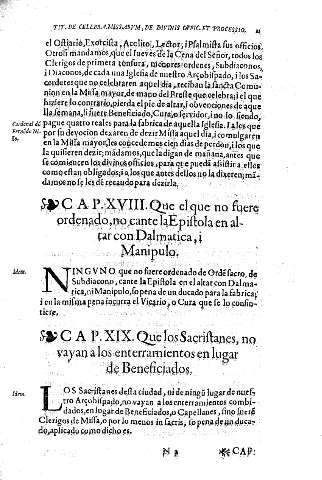 TIT. DE CELEBRA. MISSARVM, DE DIVINIS OFFIC. ET PROCESSIO.
el Ostiario, Exorcista, Acolito, Lector, i Psalmista sus officios.
Otrosi mandamos, que el Jueves de la Cena del Señor, todos los
Clerigos de primera tonsura, menores ordenes, Subdiaconos,
i Diaconos, de cada una Iglesia de nuestro Arçobispado, i los Sa-
cerdotes que no celebraren aquel dia, reciban la sancta Comu-
nion en la Missa mayor, de mano del Preste que celebra: i el que
hiziere lo contrario, pierda el pie de altar, i obvenciones de aque
lla semana, si fuere Beneficiado, Cura, o servidor, i no lo siendo,
pague quatro reales para la fabrica de aquella Iglesia. I a los que
por su devocion dexaren de dezir Missa aquel dia, i comulgaren
en la Missa mayor, les concedemos cien dias de perdon, i los que
la quisieren dezir, mãdamos, que la digan de mañana, antes que
se comiencen los divinos officios, para que puedã assistir a ellos
como estan obligados; i a los que antes dellos no la dixeren, mã-
damos no se les de recaudo para dezirla.
CAP. XVIII. Que el que no fuere
ordenado, no cante la Epistola en al-
tar con Dalmatica, i
Manipulo.
Idem.
NINGVNO que no fuere ordenado de Ordẽ sacro, de
Subdiacono, cante la Epistola en el altar con Dalma-
tica, ni Manipulo, so pena de un ducado para la fabrica;
i en la misma pena incurra el Vicario, o Cura que se lo consin-
tiere.
CAP. XIX. Que los Sacristanes, no
vayan a los enterramientos en lugar
de Beneficiados.
LOS Sacristanes desta ciudad, ni de ningũ lugar de nues-
tro Arçobispado, no vayan a los enterramientos combi-
dados, en lugar de Beneficiados, o Capellanes, sino fuerẽ
Clerigos de Missa, o por lo menos in sacris, so pena de un duca-
do, aplicado como dicho es.
CAP.